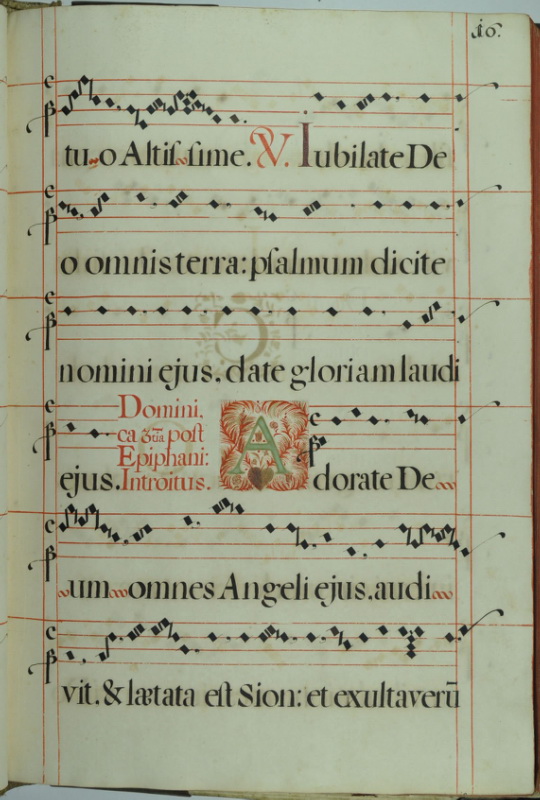 10.
tuo Altissime. V. Iubilate De
o omnis terra: psalmum dicite
nomini ejus. date gloriam laudi
ejus.
Domini,
ca 3.ua post
Epiphani:
Introitus.
Adorate De
um omnes Angeli ejus. audi
vit. & lætata est Sion: et exultaverū